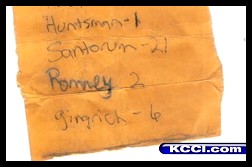 Huntsman-1
Santorum-21
Romney 2
gingrich-6
KCCI.com